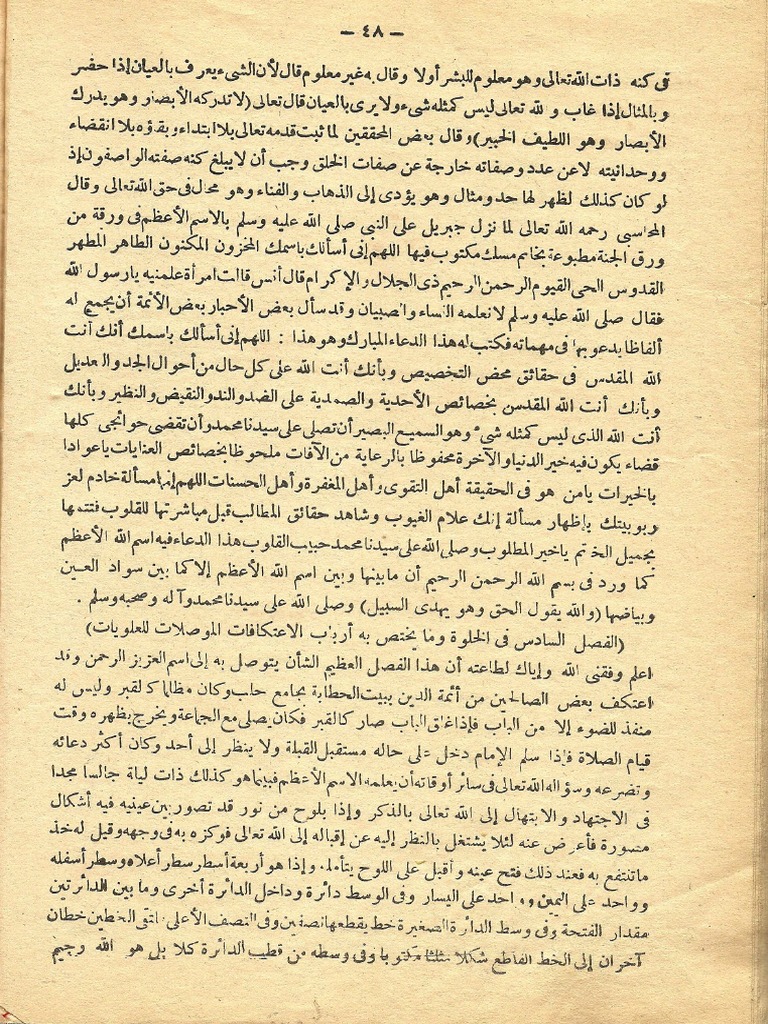 — ٤٨ —
فى كنه ذات الله تعالى وهو معلوم للبشر أولا وقال به غير معلوم قال لأن الشىء يعرف بالعيان إذا حضر
وبالمثال إذا غاب و لله تعالى ليس كمثله شىء ولا يرى بالعيان قال تعالى (لا تدركه الأبصار وهو يدرك
الأبصار وهو اللطيف الخبير) وقال بعض المحققين لما ثبت قدمه تعالى بلا ابتداء وبقاؤه بلا انقضاء
ووحدانيته لا عن عدد وصفاته خارجة عن صفات الخلق وجب أن لا يبلغ كنه صفته الواصفون إذ
لو كان كذلك لظهر لها حد ومثال وهو يؤدى إلى الذهاب والفناء وهو محال فى حق الله تعالى وقال
المحاسبى رحمه الله تعالى لما نزل جبريل على النبى صلى الله عليه وسلم بالاسم الأعظم فى ورقة من
ورق الجنة مطبوعة بخاتم مسك مكتوب فيها اللهم إنى أسألك باسمك المخزون المكنون الطاهر المطهر
القدوس الحى القيوم الرحمن الرحيم ذى الجلال والإكرام قال أنس قالت امرأة علمنيه يا رسول الله
فقال صلى الله عليه وسلم لا نعلمه النساء والصبيان وقد سأل بعض الأحبار بعض الأئمة أن يجمع له
ألفاظا يدعو بها فى مهماته فكتب له هذا الدعاء المبارك وهو هذا : اللهم إنى أسألك باسمك أنك أنت
الله المقدس فى حقائق محض التخصيص وبأنك أنت الله على كل حال من أحوال الجد والعديل
وبأنك أنت الله المقدس بخصائص الأحدية والصمدية على الضد والند والنقيض والنظير وبأنك
أنت الله الذى ليس كمثله شىء وهو السميع البصير أن تصلى على سيدنا محمد وأن تقضى حوائجى كلها
قضاء يكون فيه خير الدنيا والآخرة محفوظا بالرعاية من الآفات ملحوظا بخصائص العنايات يا عوادا
بالخيرات يامن هو فى الحقيقة أهل التقوى وأهل المغفرة وأهل الحسنات اللهم إنها مسألة خادم لعز
ربوبيتك بإظهار مسألة إنك علام الغيوب وشاهد حقائق المطالب قبل مباشرتها للقلوب فتتمها
بجميل الختم يا خير المطلوب وصلى الله على سيدنا محمد حبيب القلوب هذا الدعاء فيه اسم الله الأعظم
كما ورد فى بسم الله الرحمن الرحيم أن ما بينها وبين اسم الله الأعظم إلا كما بين سواد العين
وبياضها (والله يقول الحق وهو يهدى السبيل) وصلى الله على سيدنا محمد وآله وصحبه وسلم .
(الفصل السادس فى الخلوة وما يختص به أرباب الاعتكافات الموصلات للعلويات)
اعلم وفقنى الله وإياك لطاعته أن هذا الفصل العظيم الشأن يتوصل به إلى اسم العزيز الرحمن وقد
اعتكف بعض الصالحين من أئمة الدين ببيت الحطابة بجامع حلب وكان مظلما كالقبر وليس له
منفذ للضوء إلا من الباب فإذا غلق الباب صار كالقبر فكان يصلى مع الجماعة ويخرج بظهره وقت
قيام الصلاة فإذا سلم الإمام دخل على حاله مستقبل القبلة ولا ينظر إلى أحد وكان أكثر دعائه
وتضرعه وسؤاله الله تعالى فى سائر أوقاته أن يعلمه الاسم الأعظم فبينما هو كذلك ذات ليلة جالسا مجدا
فى الاجتهاد والابتهال إلى الله تعالى بالذكر وإذا بلوح من نور قد تصور بين عينيه فيه أشكال
مصورة فأعرض عنه لئلا يشتغل بالنظر إليه عن إقباله إلى الله تعالى فوكزه به فى وجهه وقيل له خذ
ما تنتفع به فعند ذلك فتح عينه وأقبل على اللوح يتأمله وإذا هو أربعة أسطر سطر أعلاه وسطر أسفله
وواحد على اليمين وواحد على اليسار وفى الوسط دائرة وداخل الدائرة أخرى وما بين الدائرتين
مقدار الفتحة وفى وسط الدائرة الصغيرة خط يقطعها نصفين وفى النصف الأعلى ملتقى الخطين خطان
آخران إلى الخط القاطع شكلا مثلثا مكتوبا وفى وسطه من قطب الدائرة كلا بل هو الله وجيم